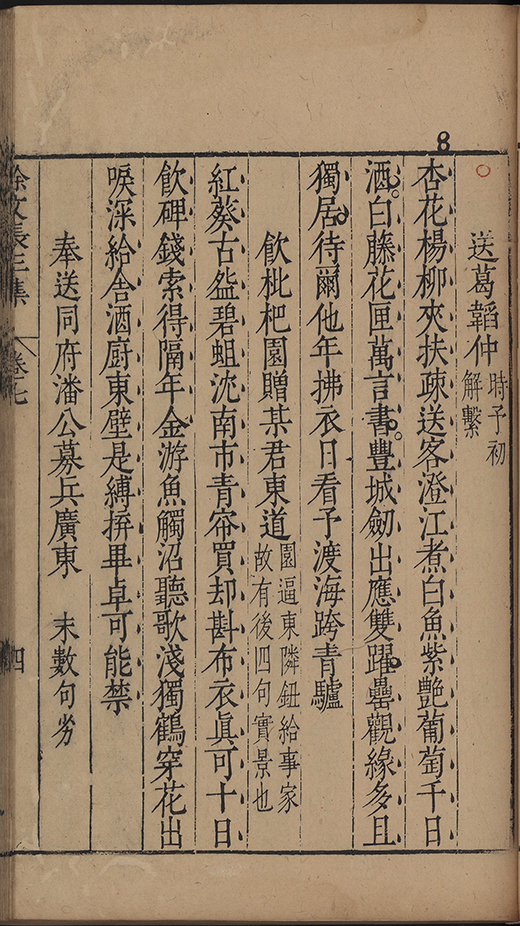 8
送葛韜仲 時予初
解繫
杏花楊柳夾扶疎送客澄江煮白魚紫艶葡萄千日
酒白藤花匣萬言書豐城劒出應雙躍罍觀緣多且
獨居待爾他年拂衣日看予渡海跨青驢
飲枇杷園贈某君東道 園逼東隣鈕給事家
故有後四句實景也
紅葵古盌碧蛆沈南市青帘買却斟布衣眞可十日
飲碑錢索得隔年金游魚觸沼聽歌淺獨鶴穿花出
唳深給舍酒廚東壁是縛拚畢卓可能禁
奉送同府潘公募兵廣東 末數句劣
徐文長三集 卷七 四